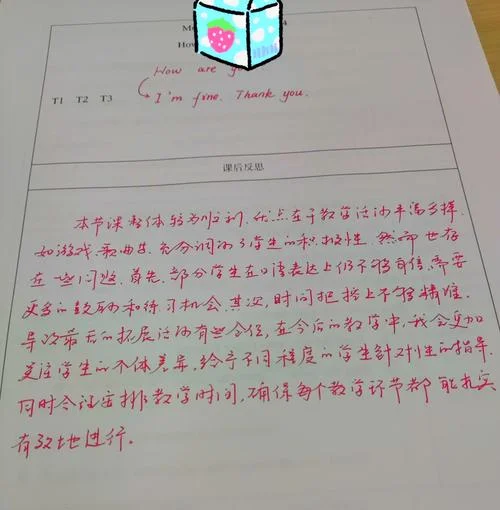 How are
T1 T2 T3 I'm fine. Thank you.
课后反思
本节课整体较为顺利，优点在于教学活动丰富多样，
如游戏、歌曲等，充分调动了学生的积极性。然而也存
在一些问题。首先，部分学生在口语表达上仍不够自信，需要
更多的鼓励和练习机会。其次，时间把控上不够精准，
导致最后的拓展活动有些仓促，在今后的教学中，我会更加
关注学生的个体差异，给予不同程度的学生针对性的指导，
同时合理安排教学时间，确保每个教学环节都能扎实
有效地进行。